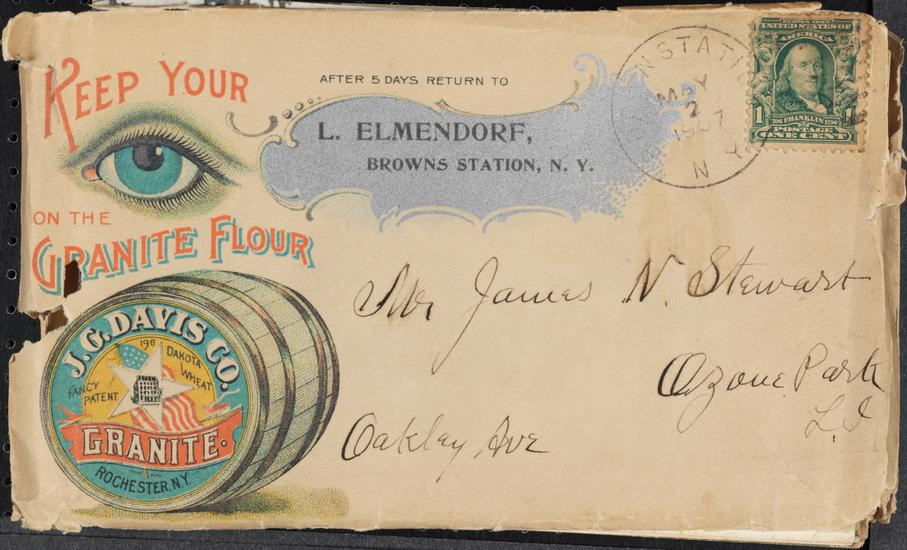 KEEP YOUR
ON THE
GRANITE FLOUR
J.G. DAVIS CO.
196
DAKOTA
WHEAT
FANCY
PATENT
GRANITE.
ROCHESTER, N.Y.
AFTER 5 DAYS RETURN TO
L. ELMENDORF,
BROWNS STATION, N. Y.
NSTATI
MAY
2
1907
N Y
SERIES 1902
UNITED STATES OF
AMERICA
1 1
1706 FRANKLIN 1790
POSTAGE
ONE CENT
Mr James N. Stewart
Ozone Park
L.I
Oakley Ave